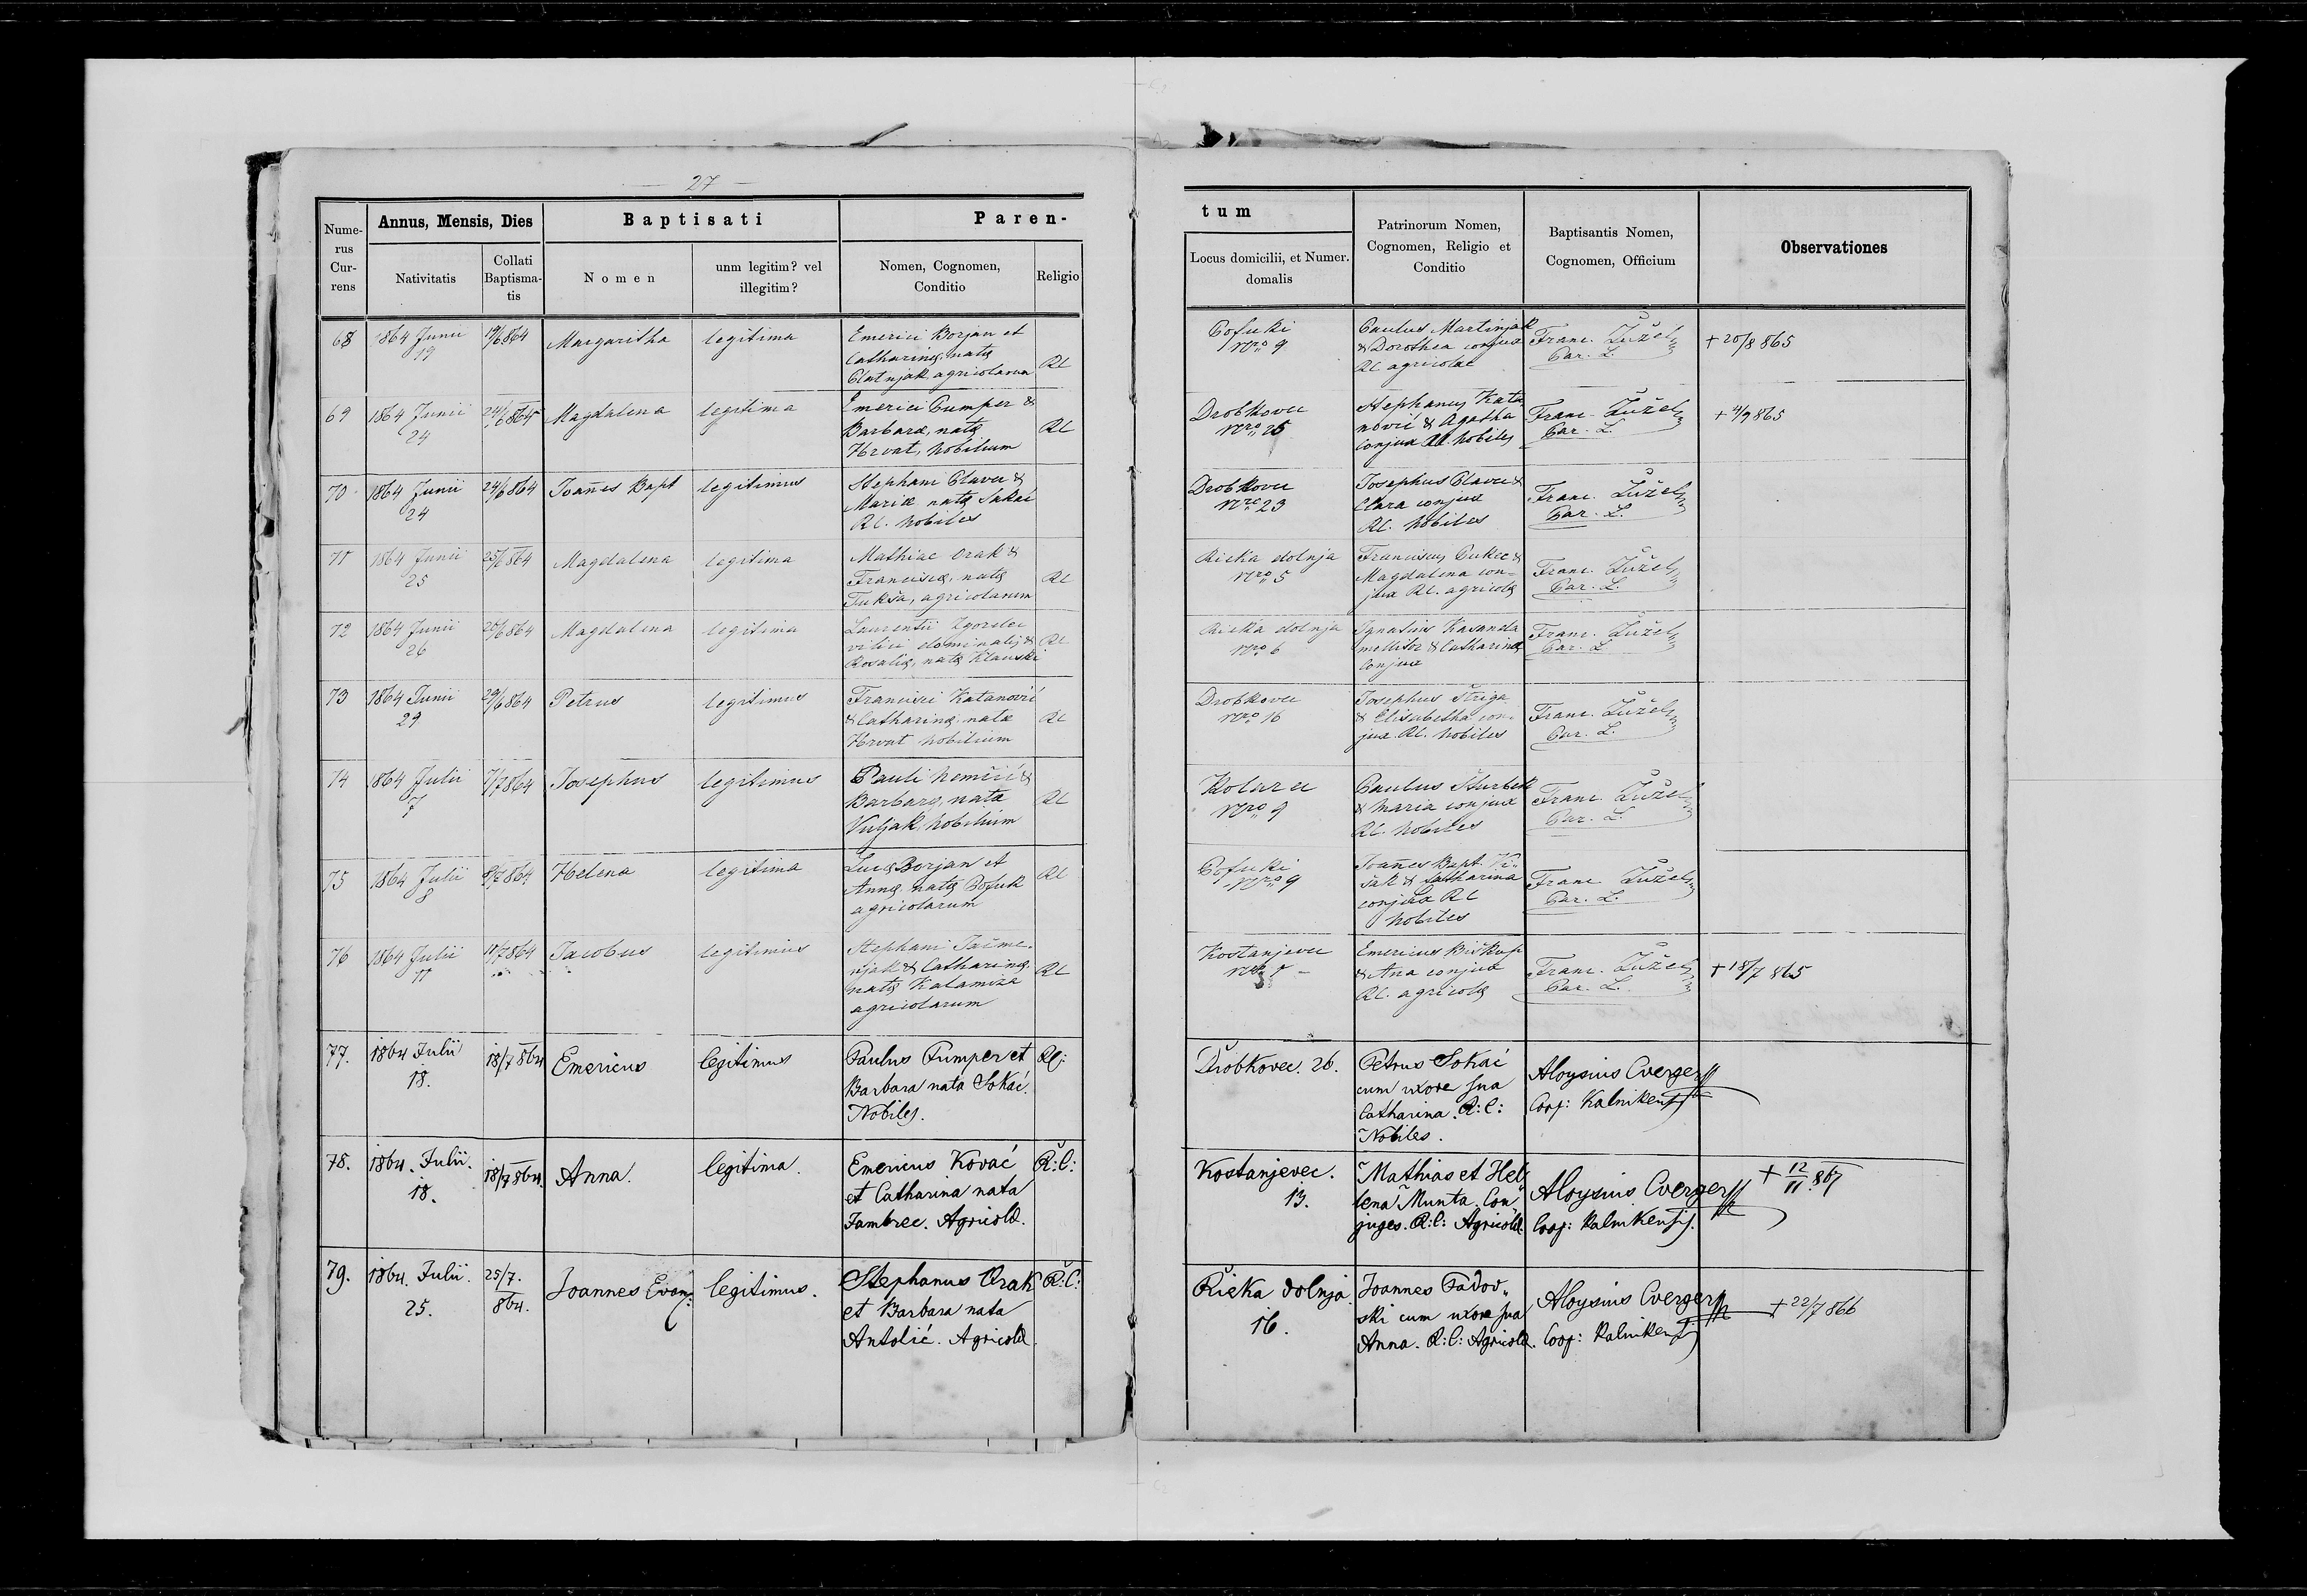 27
Nume-
rus
Cur-
rens
Annus, Mensis, Dies
Nativitatis
Collati
Baptisma-
tis
Baptisati
Nomen
unm legitim? vel
illegitim?
Paren-
Nomen, Cognomen,
Conditio
Religio
tum
Locus domicilii, et Numer.
domalis
Patrinorum Nomen,
Cognomen, Religio et
Conditio
Baptisantis Nomen,
Cognomen, Officium
Observationes
68
1864 Junii
19
19/6 864
Margaritha
legitima
Emerici Borjan et
Catharinę, natę
agricolarum
RC
Pofuki
Nro 9
Paulus Martinjak
& Dorothea conjux
RC agricolae
Franc. Žužel
Par. L.
+ 20/8 865
69
1864 Junii
24
24/6 864
Magdalena
legitima
Emerici Pumper &
Barbaræ, natę
Hrvat, Nobilium
RC
Drobkovec
Nro 26
Stephanus Kata
nović & Agatha
conjux RC. Nobiles
Franc. Žužel
Par. L.
+ 4/9 865
70
1864 Junii
24
24/6 864
Joañes Bapt
legitimus
Stephani Plavec &
Mariæ natę Sakač
RC. Nobiles
Drobkovec
Nro 23
Josephus Plavec &
Clara conjux
RC. Nobiles
Franc. Žužel
Par. L.
71
1864 Junii
25
25/6 864
Magdalena
legitima
Mathiae Orak &
Franciscę, natę
Tukša, agricolarum
RC
Rieka dolnja
Nro 5
Franciscus Pukec &
Magdalena con-
jux RC. agricolę
Franc. Žužel
Par. L.
72
1864 Junii
26
26/6 864
Magdalena
legitima
Laurentii Zgorelec
villici dominalis &
Rosalię, natę Klauski
RC
Rieka dolnja
Nro 6
Ignatius Kasanda
mellitor & Catharina
conjux
Franc. Žužel
Par. L.
73
1864 Junii
29
29/6 864
Petrus
legitimus
Francisci Katanović
& Catharinę, natæ
Hrvat Nobilium
RC
Drobkovec
Nro 16
Josephus Štriga
& Elisabetha con-
jux RC. Nobiles
Franc. Žužel
Par. L.
74
1864 Julii
7
7/7 864
Josephus
legitimus
Pauli Nemčić &
Barbarę, natæ
Vuljak, Nobilium
RC
Kolarec
Nro 9
Paulus Škurbek
& Maria conjux
RC. Nobiles
Franc. Žužel
Par. L.
75
1864 Julii
8
8/7 864
Helena
legitima
Lucę Borjan et
Annę natę Pofuk
agricolarum
RC
Pofuki
Nro 9
Joañes Bapt.
& Catharina
conjux RC
Nobiles
Franc Žužel
Par. L.
76
1864 Julii
11
11/7 864
Jacobus
legitimus
Stephani Jačme-
njak & Catharinę
natę Kalamiza
agricolarum
RC
Kostanjevec
Nro
Emericus Biškup
& Ana conjux
RC. agricolę
Franc. Žužel
Par. L.
+ 18/7 865
77.
1864 Julii
18.
18/7 864
Emericus
legitimus
Paulus Pumper et
Barbara nata Sokač.
Nobiles.
RC:
Drobkovec. 26.
Petrus Sokač
cum uxore sua
Catharina. R:C:
Nobiles.
Aloysius Cverger
Coop: Kalnikensis
78.
1864. Julii.
18.
18/7 864.
Anna.
legitima.
Emericus Kovač
et Catharina nata
Jambrec. Agricolæ.
R:C:
Kostanjevec.
13.
Mathias et Hel„
lena Munta. Con„
juges. R:C: Agricolæ.
Aloysius Cverger
Coop: Kalnikensis.
+ 12/11 867
79.
1864. Julii.
25.
25/7.
864.
Joannes Evang:
legitimus.
Stephanus Orak
et Barbara nata
Antolić. Agricolæ.
R:C:
Rieka dolnja.
16.
Joannes Padov„
ski cum uxore sua
Anna. R:C: Agricolæ.
Aloysius Cverger
Coop: Kalnikensis
+ 22/7 866